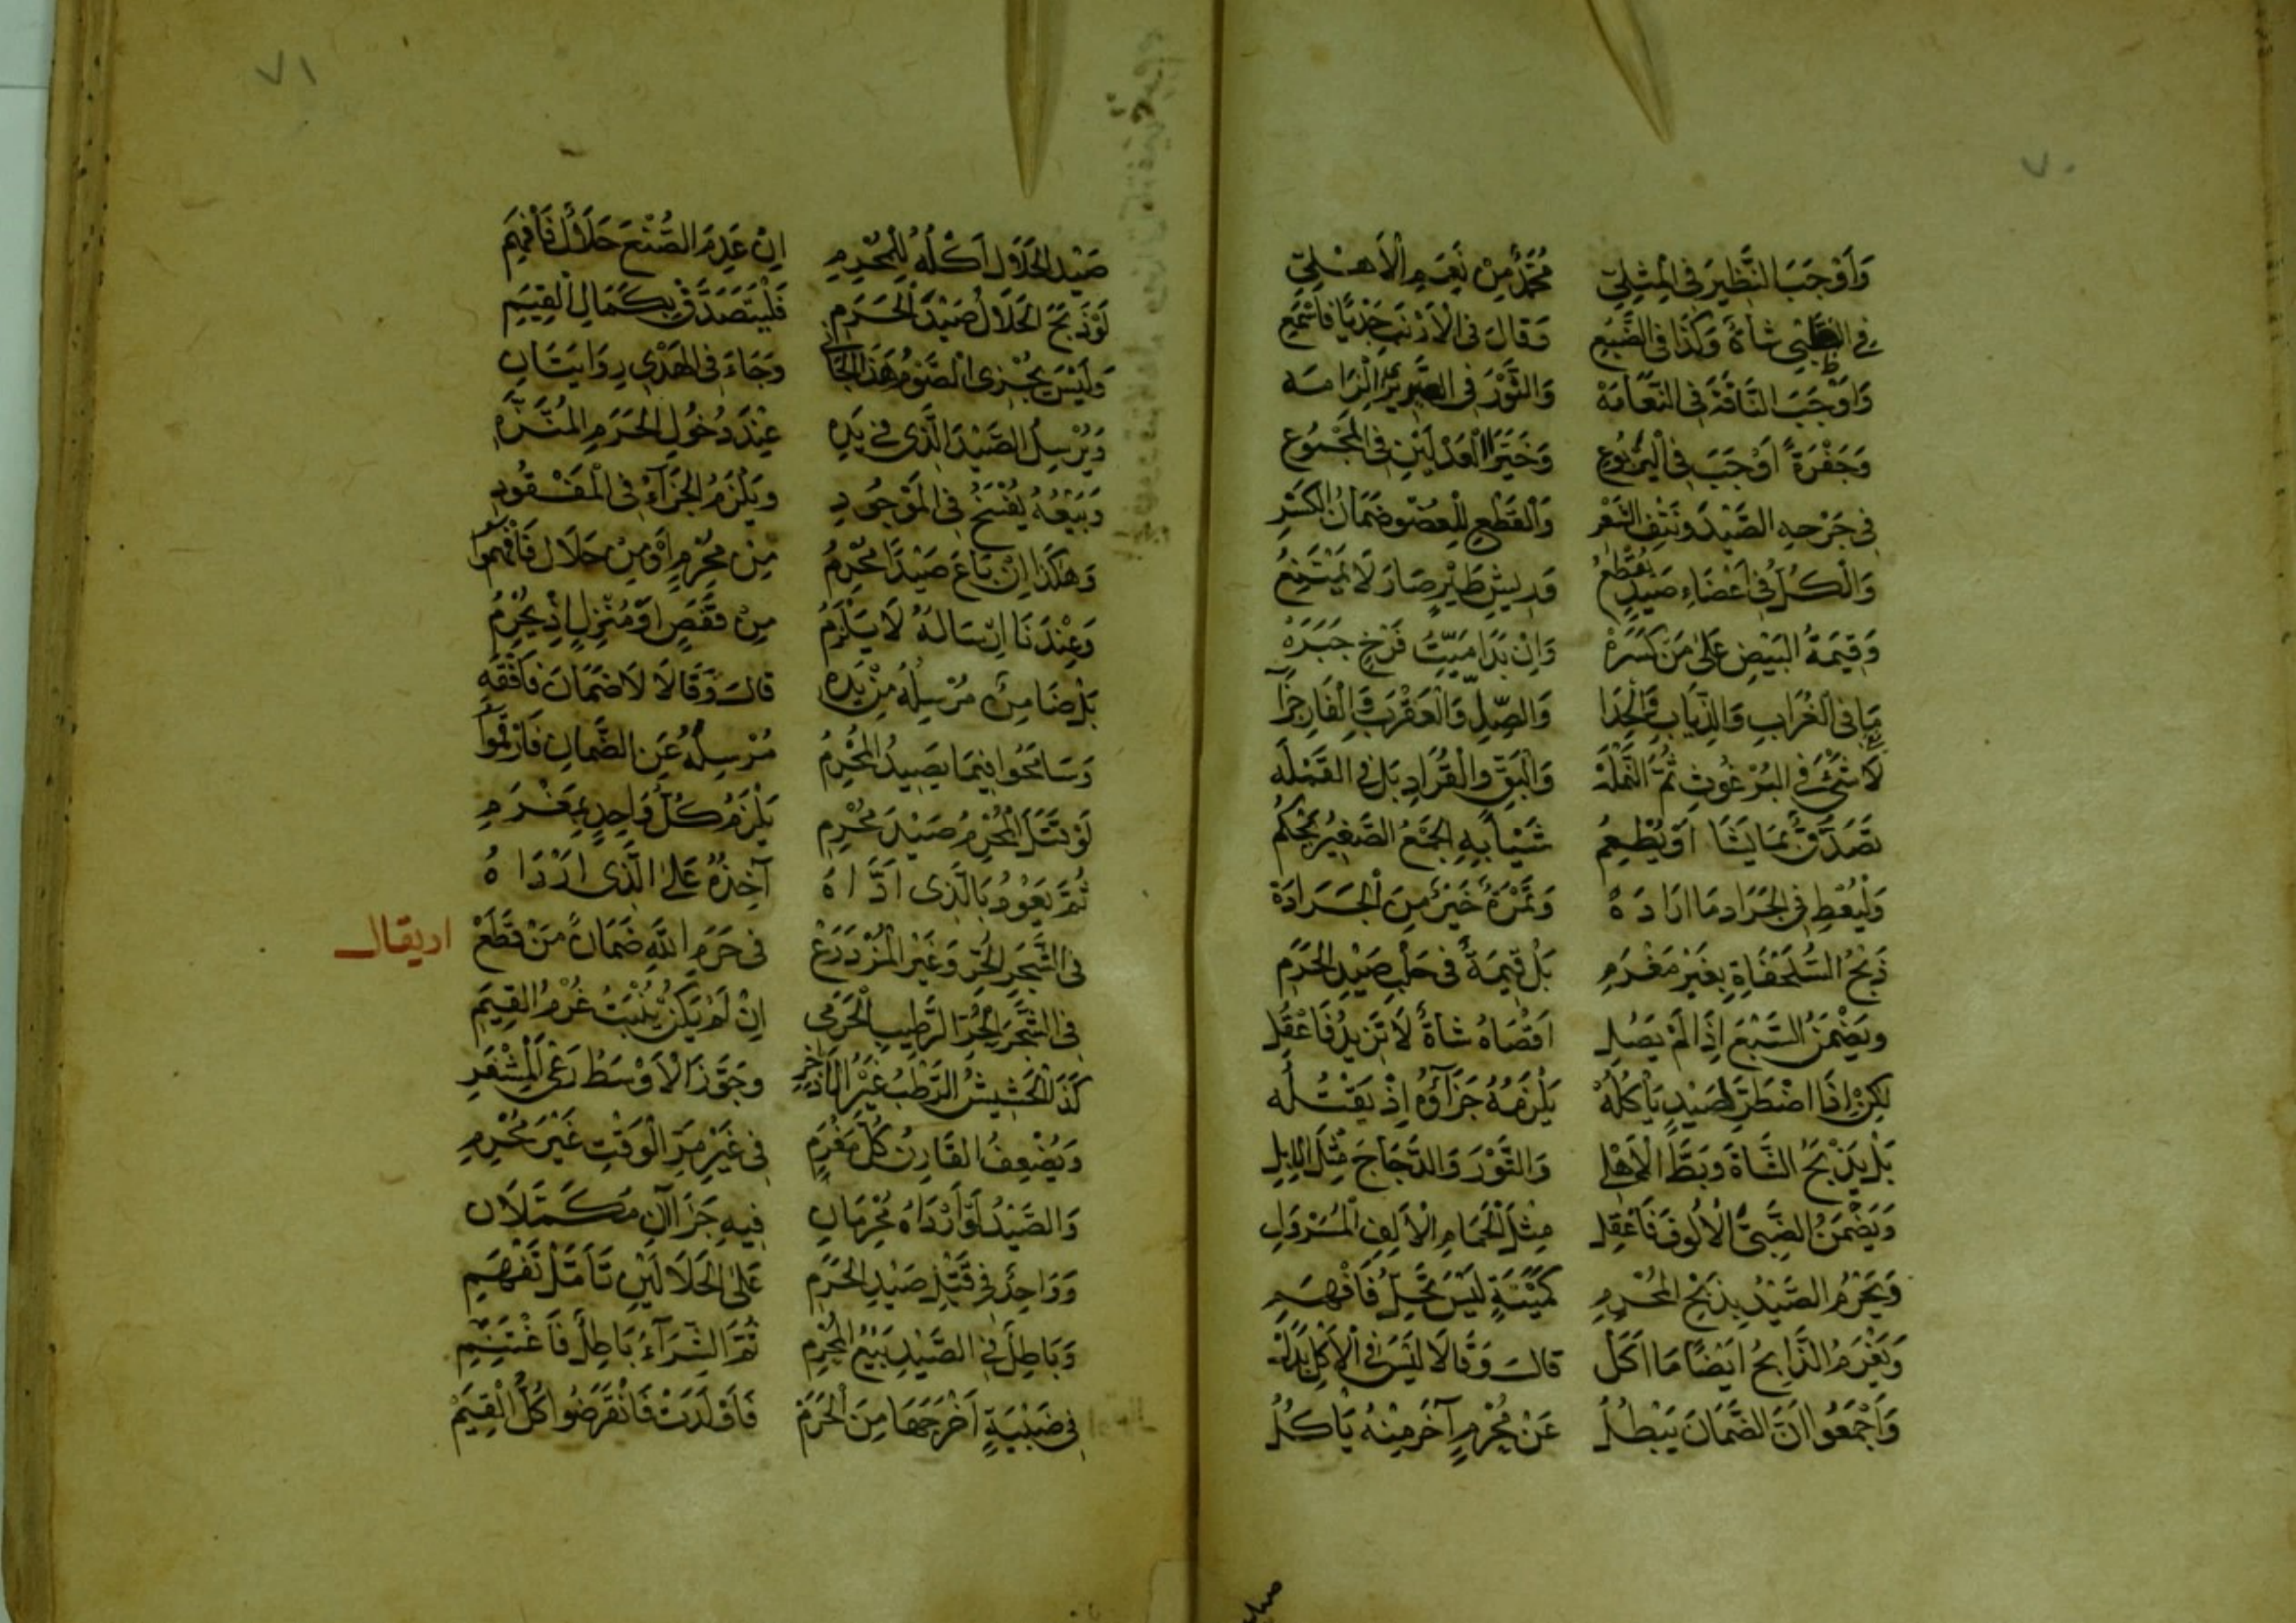 ٧٠
وَأَوْجَبَ النَّظِيرَ فِي الْمِثْلِيّ مُحَمَّدٌ مِنْ نَعَمِ الْأَهْلِيّ
فِي الظَّبْيِ شَاةً وَكَذَا فِي الضَّبُعِ وَقَالَ فِي الْأَرْنَبِ جَدْيًا فَاسْمَعِ
وَأَوْجَبَ النَّاقَةَ فِي النَّعَامَهْ وَالثَّوْرَ فِي
وَجَفْرَةً أَوْجَبَ فِي الْيَرْبُوعِ وَخَيَّرَ الْعَدْلَيْنِ فِي الْمَجْمُوعِ
فِي جَرْحِهِ الصَّيْدَ وَنَتْفِ الشَّعْرِ وَالْقَطْعِ لِلْعُضْوِ ضَمَانُ الْكَسْرِ
وَالْكُلُّ فِي أَعْضَاءِ صَيْدٍ تُقْطَعُ وَرِيشِ طَيْرٍ صَارَ لَا يَمْتَنِعُ
وَقِيمَةُ الْبَيْضِ عَلَى مَنْ كَسَرَهْ وَإِنْ بَدَا مَيِّتُ فَرْخٍ جَبَرَهْ
مَا فِي الْغُرَابِ وَالذِّيَابِ وَالْحِدَا وَالصِّلِّ وَالْعَقْرَبِ وَالْفَارِ جَزَآ
لَا شَيْءَ فِي الْبُرْغُوثِ ثُمَّ النَّمْلَهْ وَالْبَقِّ وَالْقُرَادِ بَلْ فِي الْقَمْلَهْ
تَصَدَّقَ بِمَا يَشَا أَوْ يُطْعِمُ شَيْئًا بِهِ الْجَمْعُ الصَّغِيرُ يَحْكُمُ
وَلْيُعْطِ فِي الْجَرَادِ مَا أَرَادَهْ وَتَمْرَةٌ خَيْرٌ مِنَ الْجَرَادَةْ
ذَبْحُ السُّلَحْفَاةِ بِغَيْرِ مَغْرَمِ بَلْ قِيمَةٌ فِي حَلْبِ صَيْدِ الْحَرَمِ
وَيَضْمَنُ السَّبْعَ إِذَا لَمْ يَصُلِ أَقْصَاهُ شَاةٌ لَا تَزِيدُ فَاعْقِلِ
لَكِنْ إِذَا اضْطُرَّ لِصَيْدٍ يَأْكُلُهْ يَلْزَمُهُ جَزَآؤُهُ إِذْ يَقْتُلُهْ
بَلْ يَذْبَحُ الشَّاةَ وَبَطَّ الْأَهْلِ وَالثَّوْرَ وَالدَّجَاجَ مِثْلَ الْإِبِلِ
وَيَضْمَنُ الظَّبْيَ الْأَلُوفَ فَاعْقِلِ مِثْلَ الْحَمَامِ الْأَلِفِ الْمُسَرْوَلِ
وَيَحْرُمُ الصَّيْدُ بِذَبْحِ الْمُحْرِمِ كَمَيْتَةٍ لَيْسَ تَحِلُّ فَافْهَمِ
وَيَغْرَمُ الذَّابِحُ أَيْضًا مَا أَكَلْ قَالَ وَقَالَا لَيْسَ فِي الْأَكْلِ بَدَلْ
وَأَجْمَعُوا أَنَّ الضَّمَانَ يَبْطُلُ عَنْ مُحْرِمٍ آخَرَ مِنْهُ يَأْكُلُ
صيد
٧١
صَيْدُ الْحَلَالِ أَكْلُهُ لِلْمُحْرِمِ إِنْ عَدِمَ الصُّنْعَ حَلَالٌ فَافْهَمِ
لَوْ ذَبَحَ الْحَلَالُ صَيْدَ الْحَرَمِ فَلْيَتَصَدَّقْ بِكَمَالِ الْقِيَمِ
وَلَيْسَ يُجْزِي الصَّوْمُ هَذَا الْجَانِي وَجَاءَ فِي الْهَدْيِ رِوَايَتَانِ
وَيُرْسِلُ الصَّيْدَ الَّذِي فِي يَدِهِ عِنْدَ دُخُولِ الْحَرَمِ الْمُنَزَّهِ
وَبَيْعُهُ يُفْسَخُ فِي الْمَوْجُودِ وَيَلْزَمُ الْجَزَآءُ فِي الْمَفْقُودِ
وَهَكَذَا إِنْ بَاعَ صَيْدًا مُحْرِمُ مِنْ مُحْرِمٍ أَوْ مِنْ حَلَالٍ فَافْهَمُوا
وَعِنْدَنَا إِرْسَالُهُ لَا يَلْزَمُ مِنْ قَفَصٍ أَوْ مَنْزِلٍ إِذْ يُحْرِمُ
بَلْ ضَامِنٌ مُرْسِلُهُ مِنْ يَدِهِ قَالَ وَقَالَا لَا ضَمَانَ فَافْقَهِ
وَسَامَحُوا فِيمَا يَصِيدُ الْمُحْرِمُ مُرْسِلَهُ عَنِ الضَّمَانِ فَارْقُمُوا
لَوْ قَتَلَ الْمُحْرِمُ صَيْدَ مُحْرِمِ يَلْزَمُ كُلُّ وَاحِدٍ بِمَغْرَمِ
ثُمَّ يَعُوْدُ بِالَّذِي أَدَّاهُ آخِذُهُ عَلَى الَّذِي أَرْدَاهُ
فِي الشَّجَرِ الْحُرِّ وَغَيْرِ الْمُزْدَرَعْ فِي حَرَمِ اللَّهِ ضَمَانُ مَنْ قَطَعْ
او يقال
فِي الشَّجَرِ الْحُرِّ الرَّطِيبِ الْحَرَمِي إِنْ لَمْ يَكُنْ يُنْبَتُ غُرْمُ الْقِيَمِ
كَذَا الْحَشِيشُ الرَّطْبُ غَيْرُ الْإِذْخِرِ وَجَوَّزَ الْأَوْسَطُ رَعْيَ الْمِشْفَرِ
وَيُضْعِفُ الْقَارِنُ كُلَّ مَغْرَمِ فِي غَيْرِ مَرِّ الْوَقْتِ غَيْرَ مُحْرِمِ
وَالصَّيْدُ لَوْ أَرْدَاهُ مُحْرِمَانِ فِيهِ جَزَاآنِ مُكَمَّلَانِ
وَوَاحِدٌ فِي قَتْلِ صَيْدِ الْحَرَمِ عَلَى الْحَلَالَيْنِ تَأَمَّلْ تَفْهَمِ
وَبَاطِلٌ فِي الصَّيْدِ بَيْعُ الْمُحْرِمِ ثُمَّ الشِّرَآءُ بَاطِلٌ فَاغْتَنِمِ
فِي ظَبْيَةٍ أَخْرَجَهَا مِنَ الْحَرَمْ فَأَوْلَدَتْ فَانْقَرَضُوا كُلُّ الْقِيَمْ